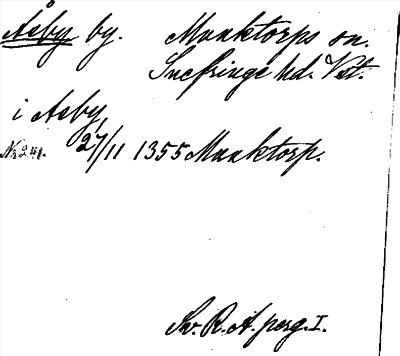 Åsby by. Munktorps sn.
Snefringe hd. Vstl.
i Asby
27/11 1355 Munktorp.
Nr 241.
Sv. R. A. perg. I.